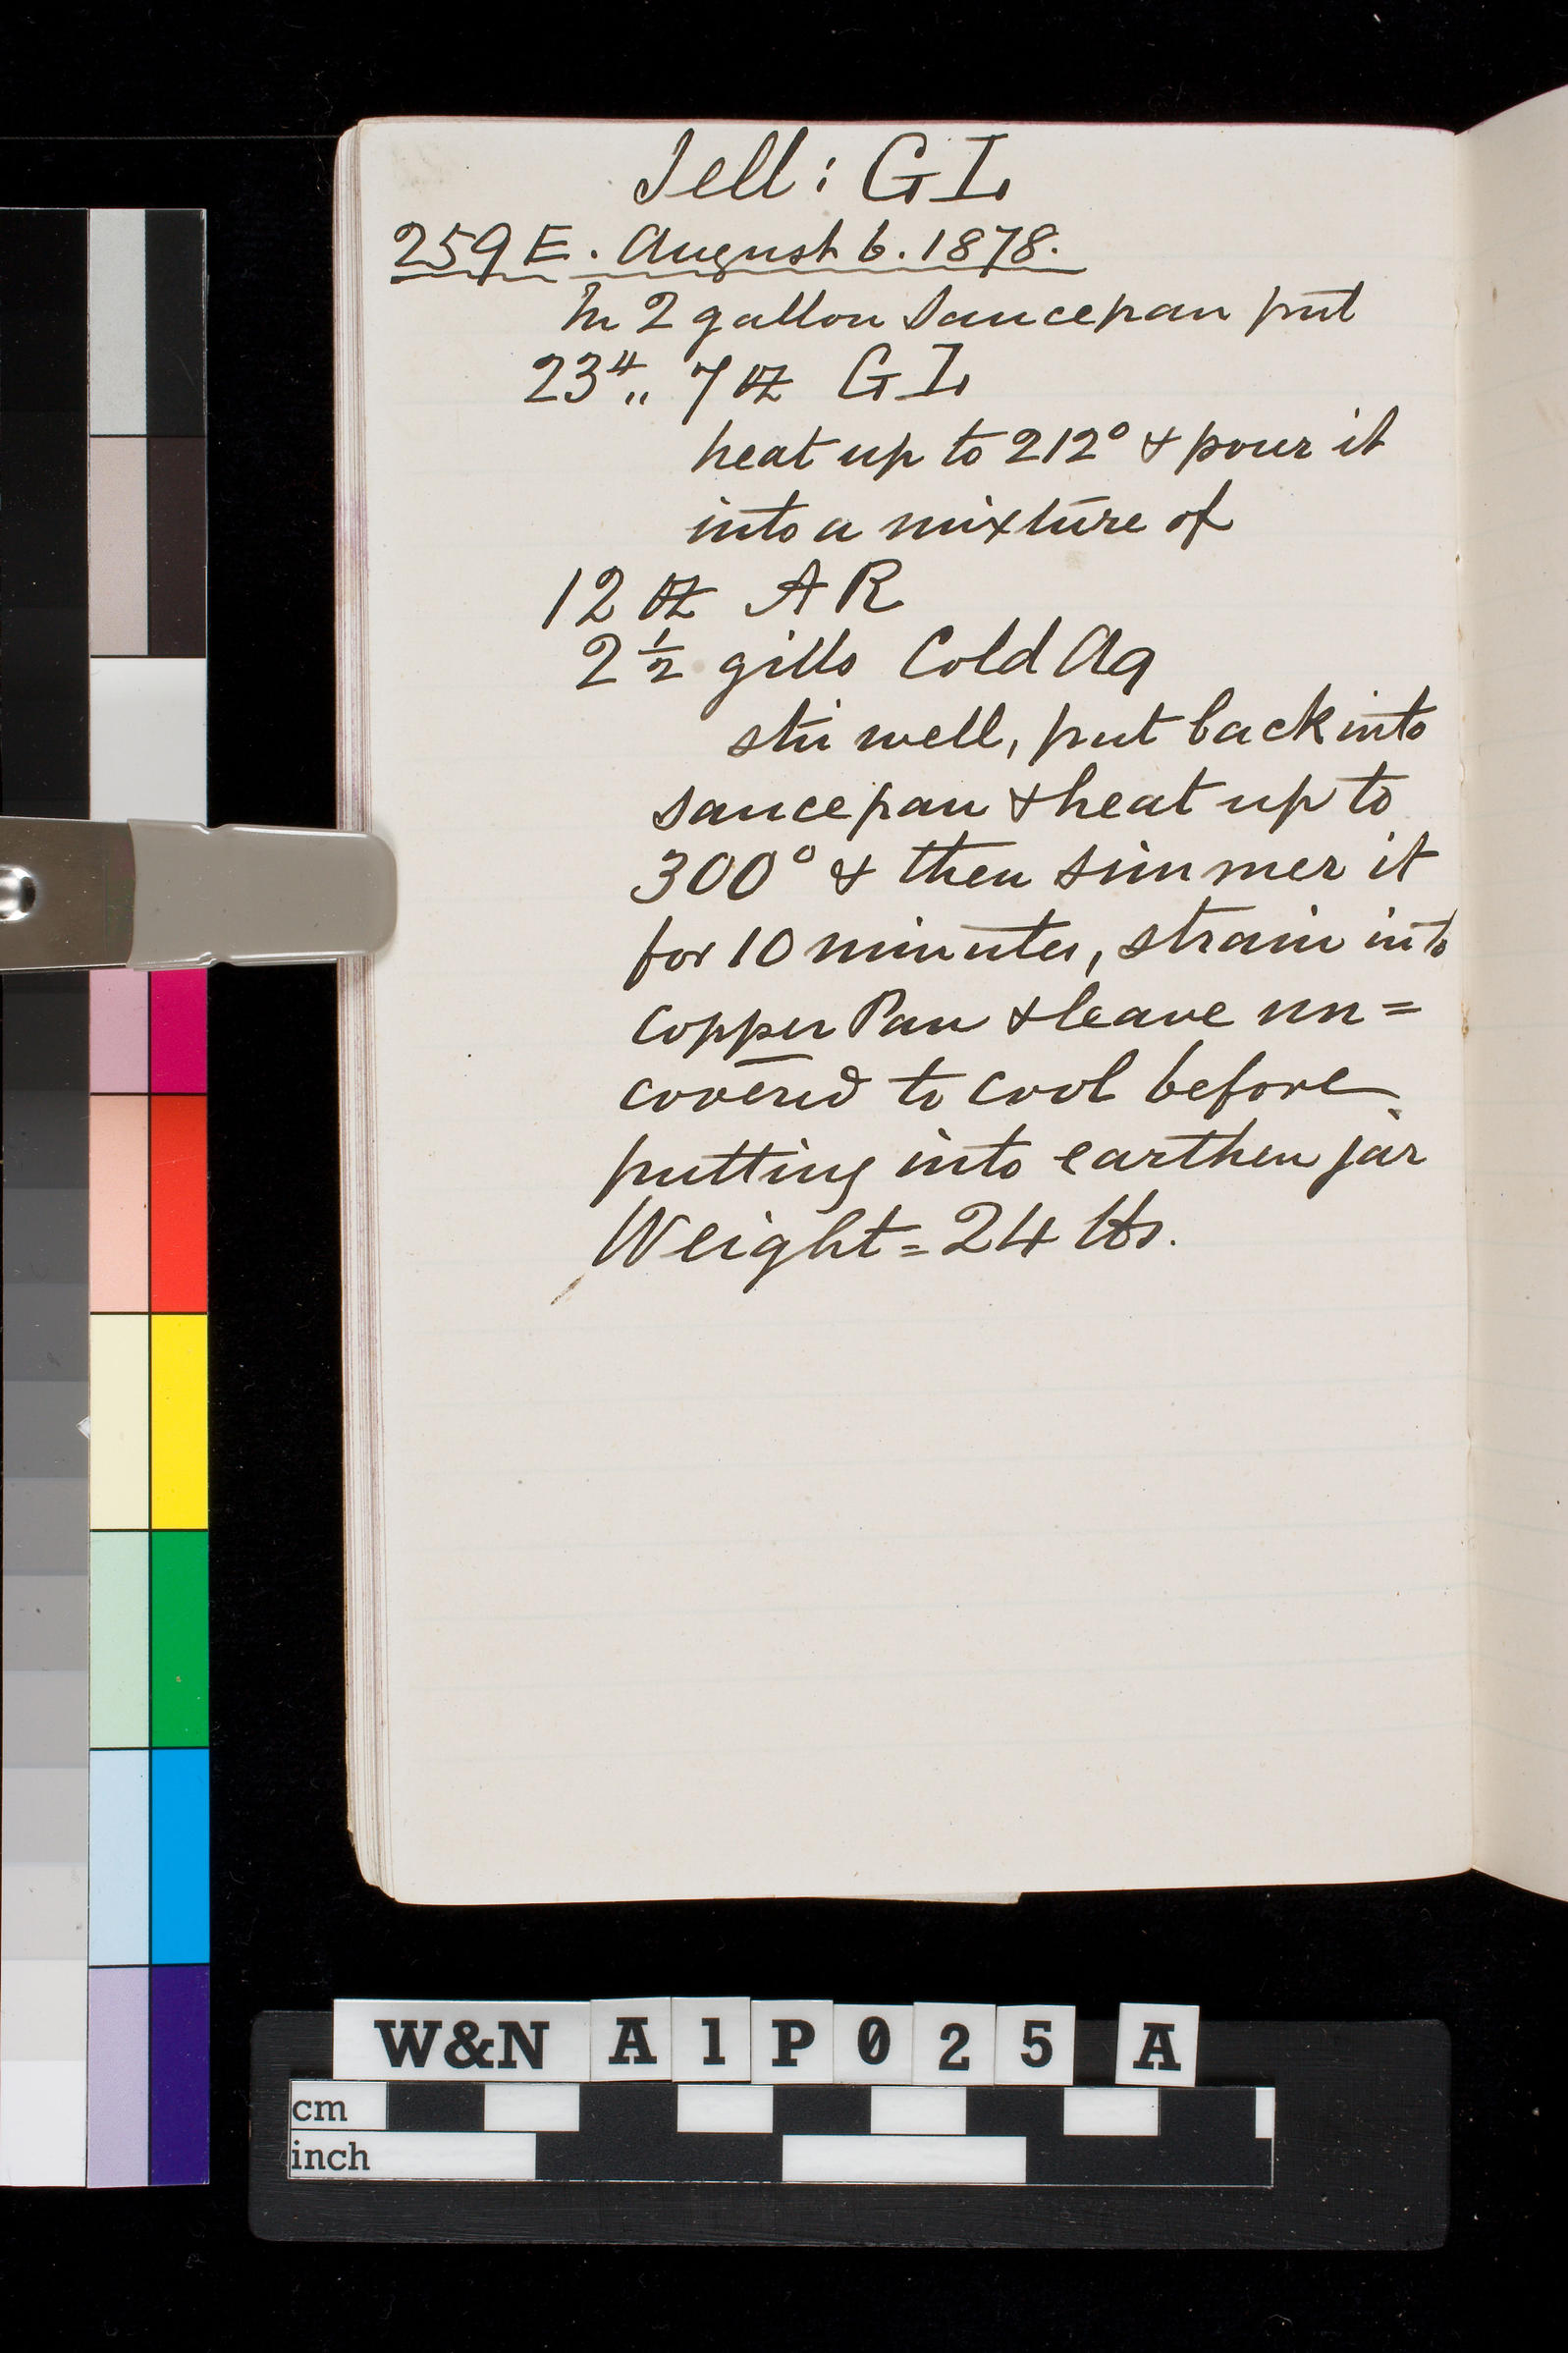 Jell: GL
259 E. August 6. 1878.
In 2 gallon saucepan put
23 # ,, 7 oz GL
heat up to 212° & pour it
into a mixture of
12 oz AR
2 1/2 gills Cold Aq
stir well, put back into
saucepan & heat up to
300° & then simmer it
for 10 minutes, strain into
copper Pan & leave un=
covered to cool before
putting into earthen jar
Weight = 24 lbs.
W&N A1P025 A
cm
inch